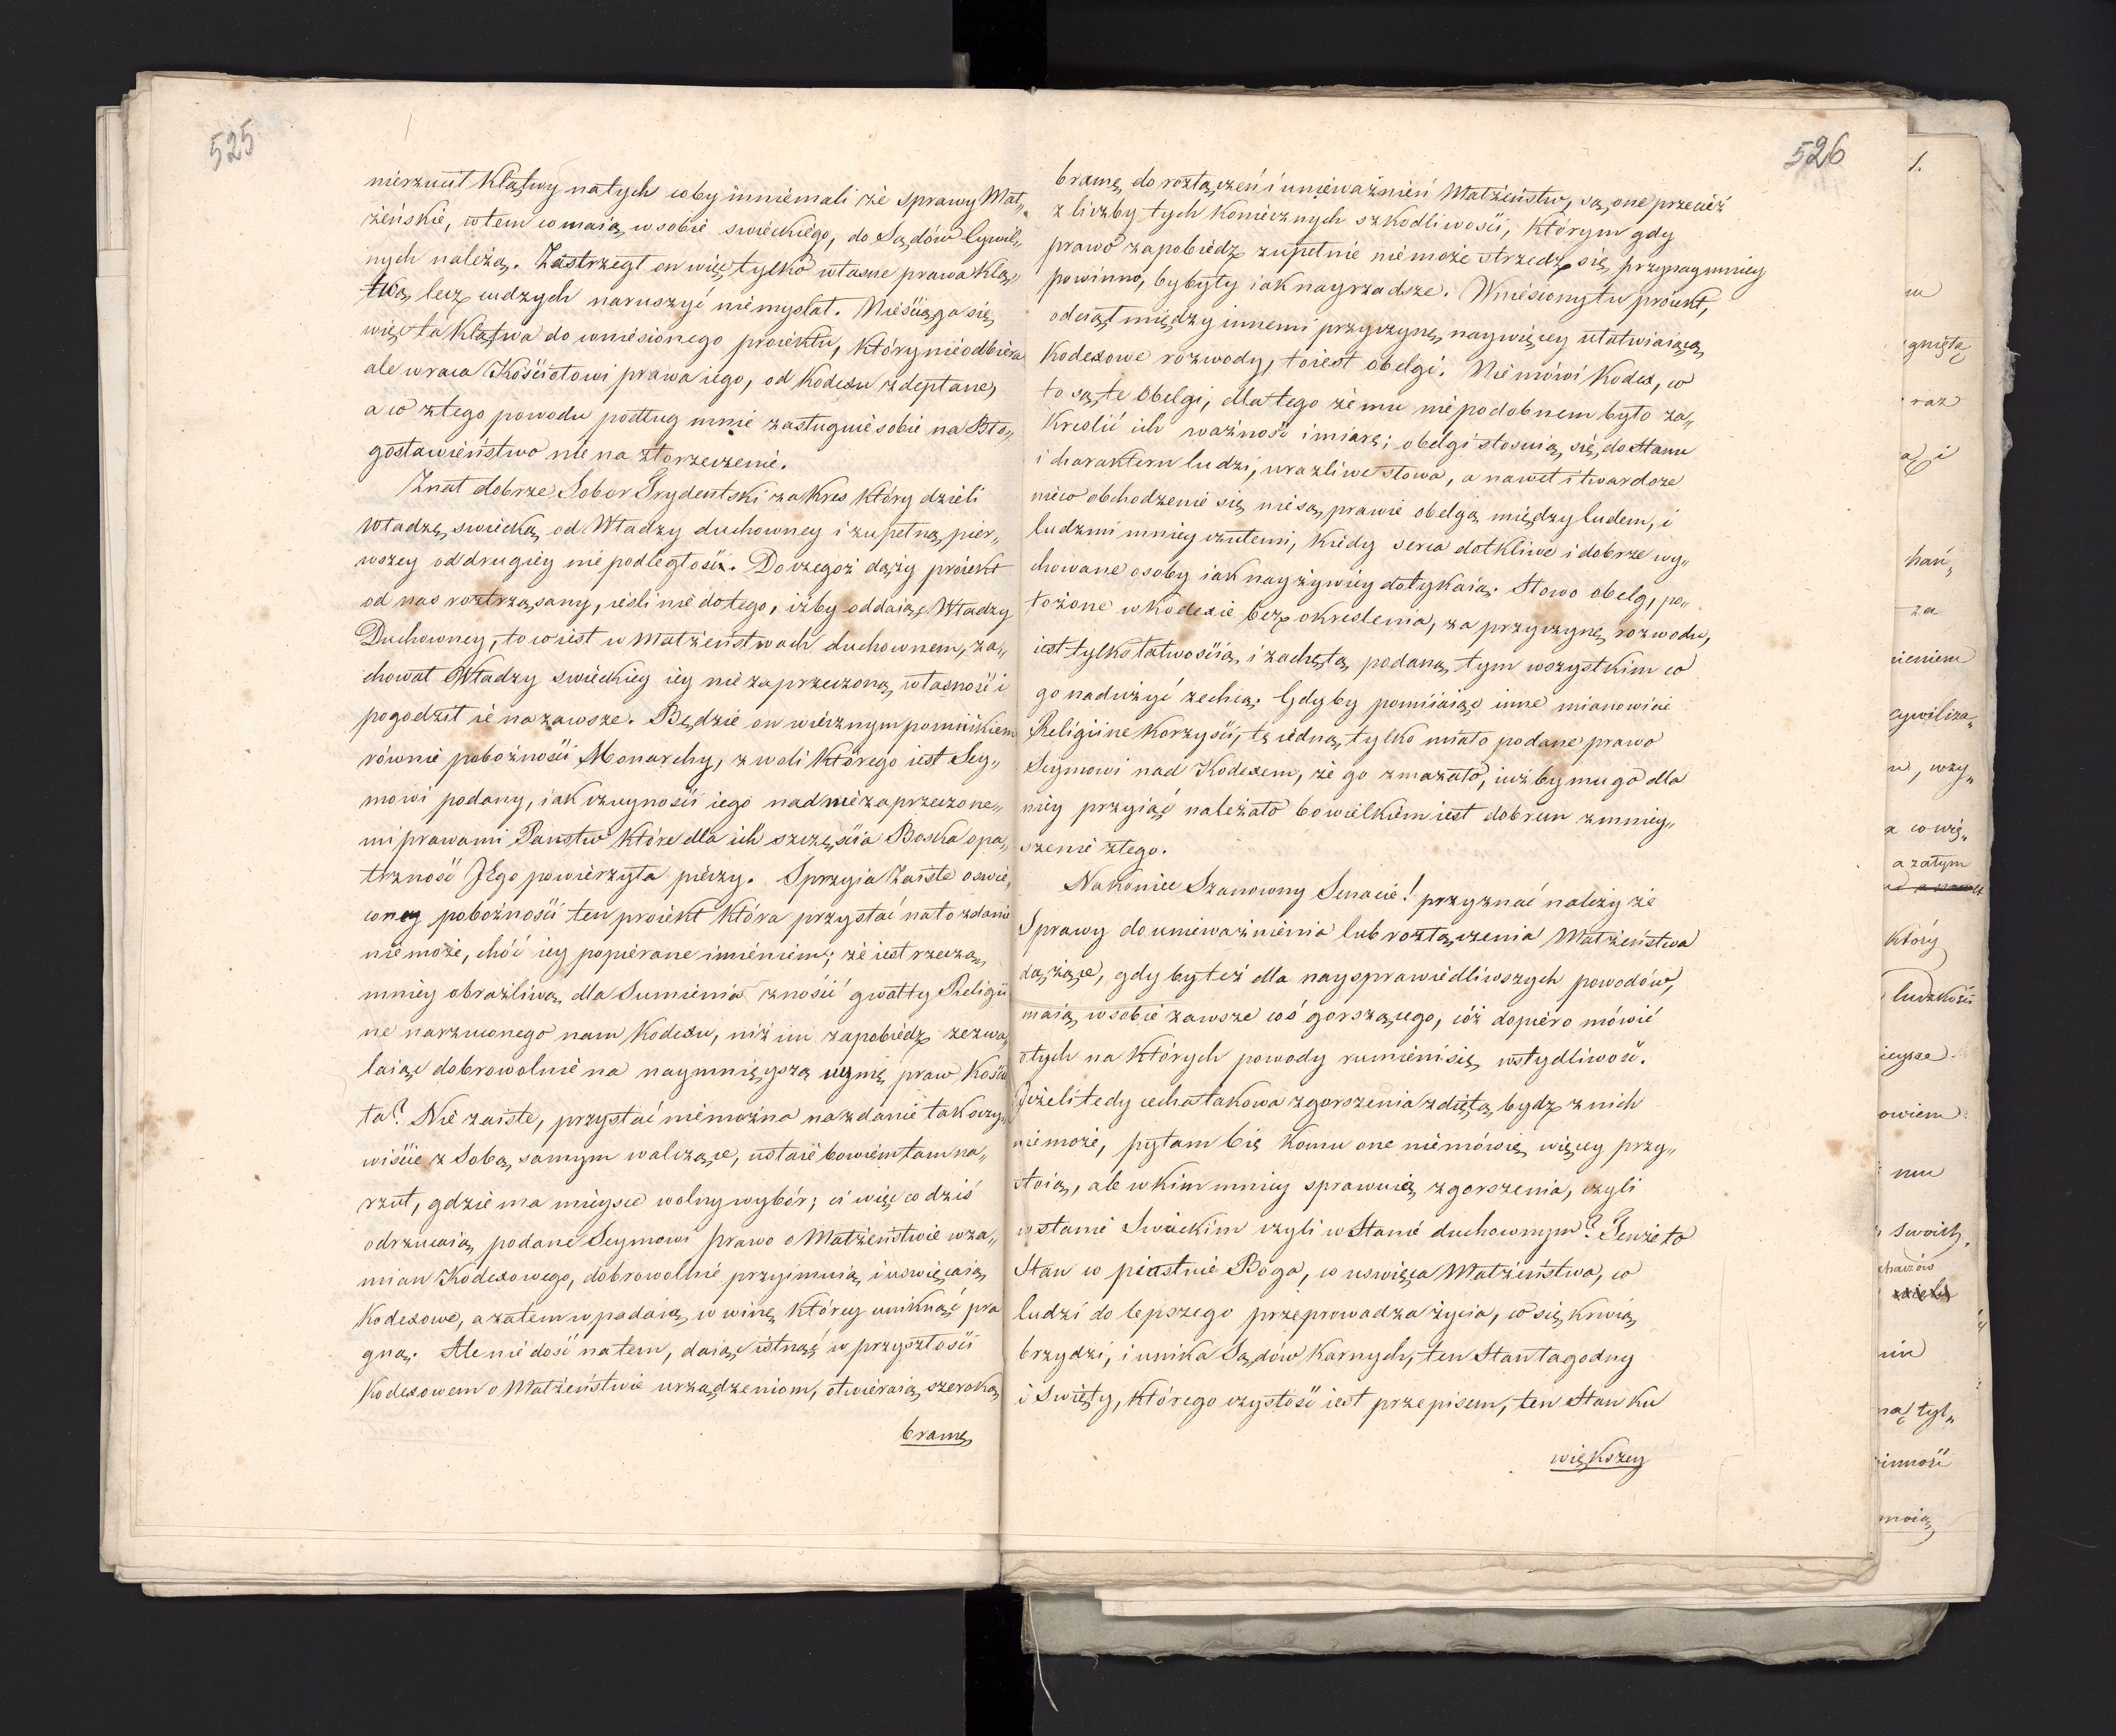 525
nierzucił Klątwy na tych coby inniemali że sprawy Mał„
żeńskie, w tem co maią w sobie swieckiego, do Sądów Cywil„
nych należą. Zastrzegł on więc tylko własne prawa Klą„
twą, lecz cudzych naruszyć niemyslał. Nieściąga się
więc ta Klątwa do wniesionego proiektu, który nieodbiera
ale wraca Kościołowi prawa iego, od Kodexu zdeptane,
a co z tego powodu podług mnie zasługuie sobie na Bło„
gosławieństwo nie na złorzeczenie.
Znał dobrze Sobor Trydentski zakres który dzieli
Władzę swiecką od Władzy duchowney i zupełną pier„
wszey od drugiey niepodległość. Do czegoż dąży proiekt
od nas roztrząsany, ieśli nie do tego, iżby oddaiąc Władzy
Duchowney, to co iest w Małżeństwach duchownem, za„
chował Władzy swieckiey iey niezaprzeczoną własność i
pogodził ie na zawsze. Będzie on wiecznym pomnikiem
równie pobożności Monarchy, z woli którego iest Sey„
mowi podany, iak czuyności iego nad niezaprzeczone„
mi prawami Panstw które dla ich szczęścia Boska opa„
trzność Jego powierzyła pieczy. Sprzyia Zaiste oswie„
coney pobożności ten proiekt która przystać na to zdanie
niemoże, choć iey popierane imieniem; że iest rzeczą
mniey obrażliwą dla Sumienia znosić gwałty Religii
ne narzuconego nam Kodexu, niż im zapobiedz zezwa„
laiąc dobrowolnie na naymnieyszą uymę praw Kościo
ła? Nie zaiste, przystać niemożna na zdanie tak oczy„
wiście z Sobą samym walczące, ustaie bowiem tam na„
rzut, gdzie ma mieysce wolny wybór; ci więc co dziś
odrzucaią podane Seymowi prawo o Małżeństwie wza„
mian Kodexowego, dobrowolnie przyimuią i uswięcaią
Kodexowe, a zatem wpadaią w winę którey uniknąć pra
gną. Ale nie dość na tem, daiąc istnąć w przyszłości
Kodexowem o Małżeństwie urządzeniom, otwieraią szeroką
bramę
526
bramę do rozłączeń i unieważnień Małżeństw, są one przecież
z liczby tych koniecznych szkodliwości, którym gdy
prawo zapobiedz zupełnie niemoże strzedz się przynaymniey
powinno, by były iak nayrzadsze. Wniesiony tu proiekt,
odciął między innemi przyczynę naywięcey ułatwiaiącą
Kodexowe rozwody, to iest obelgi. Nie mówi Kodex, co
to są te Obelgi, dla tego że mu niepodobnem było za„
kreslić ich ważność i miarę; obelgi stosuią się do stanu
i charakteru ludzi, urazliwe słowa, a nawet i twardsze
nieco obchodzenie się nie są prawie obelgą między ludem, i
ludzmi mniey czułemi, kiedy serca dotkliwe i dobrze wy„
chowane osoby iak nayżywiey dotykaią. Słowo obelg, po„
łożone w Kodexie bez okreslenia, za przyczynę rozwodu,
iest tylko łatwością i zachętą podaną tym wszystkim co
go nadużyć zechcą. Gdyby pomiiaiąc inne mianowicie
Religiine korzyści, tę iedną tylko miało podane prawo
Seymowi nad Kodexem, że go zmazało, iużby mu go dla
niey przyiąć należało bo wielkiem iest dobrem zmniey„
szenie złego.
Nakoniec Szanowny Senacie! przyznać należy że
Sprawy do unieważnienia lub rozłączenia Małżeństwa
dążące, gdyby też dla naysprawiedliwszych powodów,
maią w sobie zawsze coś gorszącego, cóż dopiero mówić
o tych na których powody rumieni się wstydliwość.
Jeżeli tedy cecha takowa zgorszenia zdiętą bydz z nich
niemoże, pytam się komu one niemówię więcey przy„
stoią, ale w kim mniey sprawuią zgorszenia, czyli
w stanie Swieckim czyli w Stanie duchownym? Tenże to
Stan co piastuie Boga, co uswięca Małżeństwa, co
ludzi do lepszego przeprowadza życia, co się krwią
brzydzi, i unika Sądów Karnych, ten Stan łagodny
i Swięty, którego czystość iest przepisem, ten Stan ku
większey
1.
gniętą
raz
hań„
za
cywiliza„
a co wię„
a zatym
który
ludzkości
mu
swoich